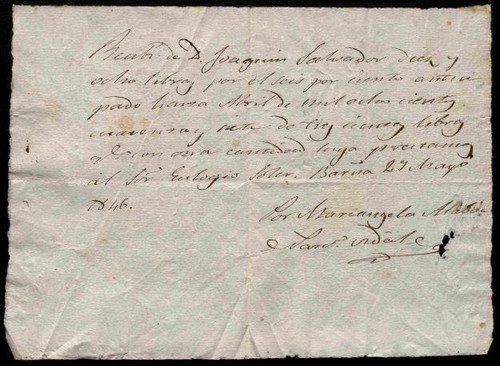 Recibí de D. Joaquin Salvador diez y
ocho libras por el seis por ciento antici
pado hasta Abril de mil ocho cientos
cuarenta y siete de tres cientas libras
q.e con otra cantidad suya prestamos
al Sor. Eulogio Soler. Barna 29 Mayo
1846.
Por Mariangela
Vidal